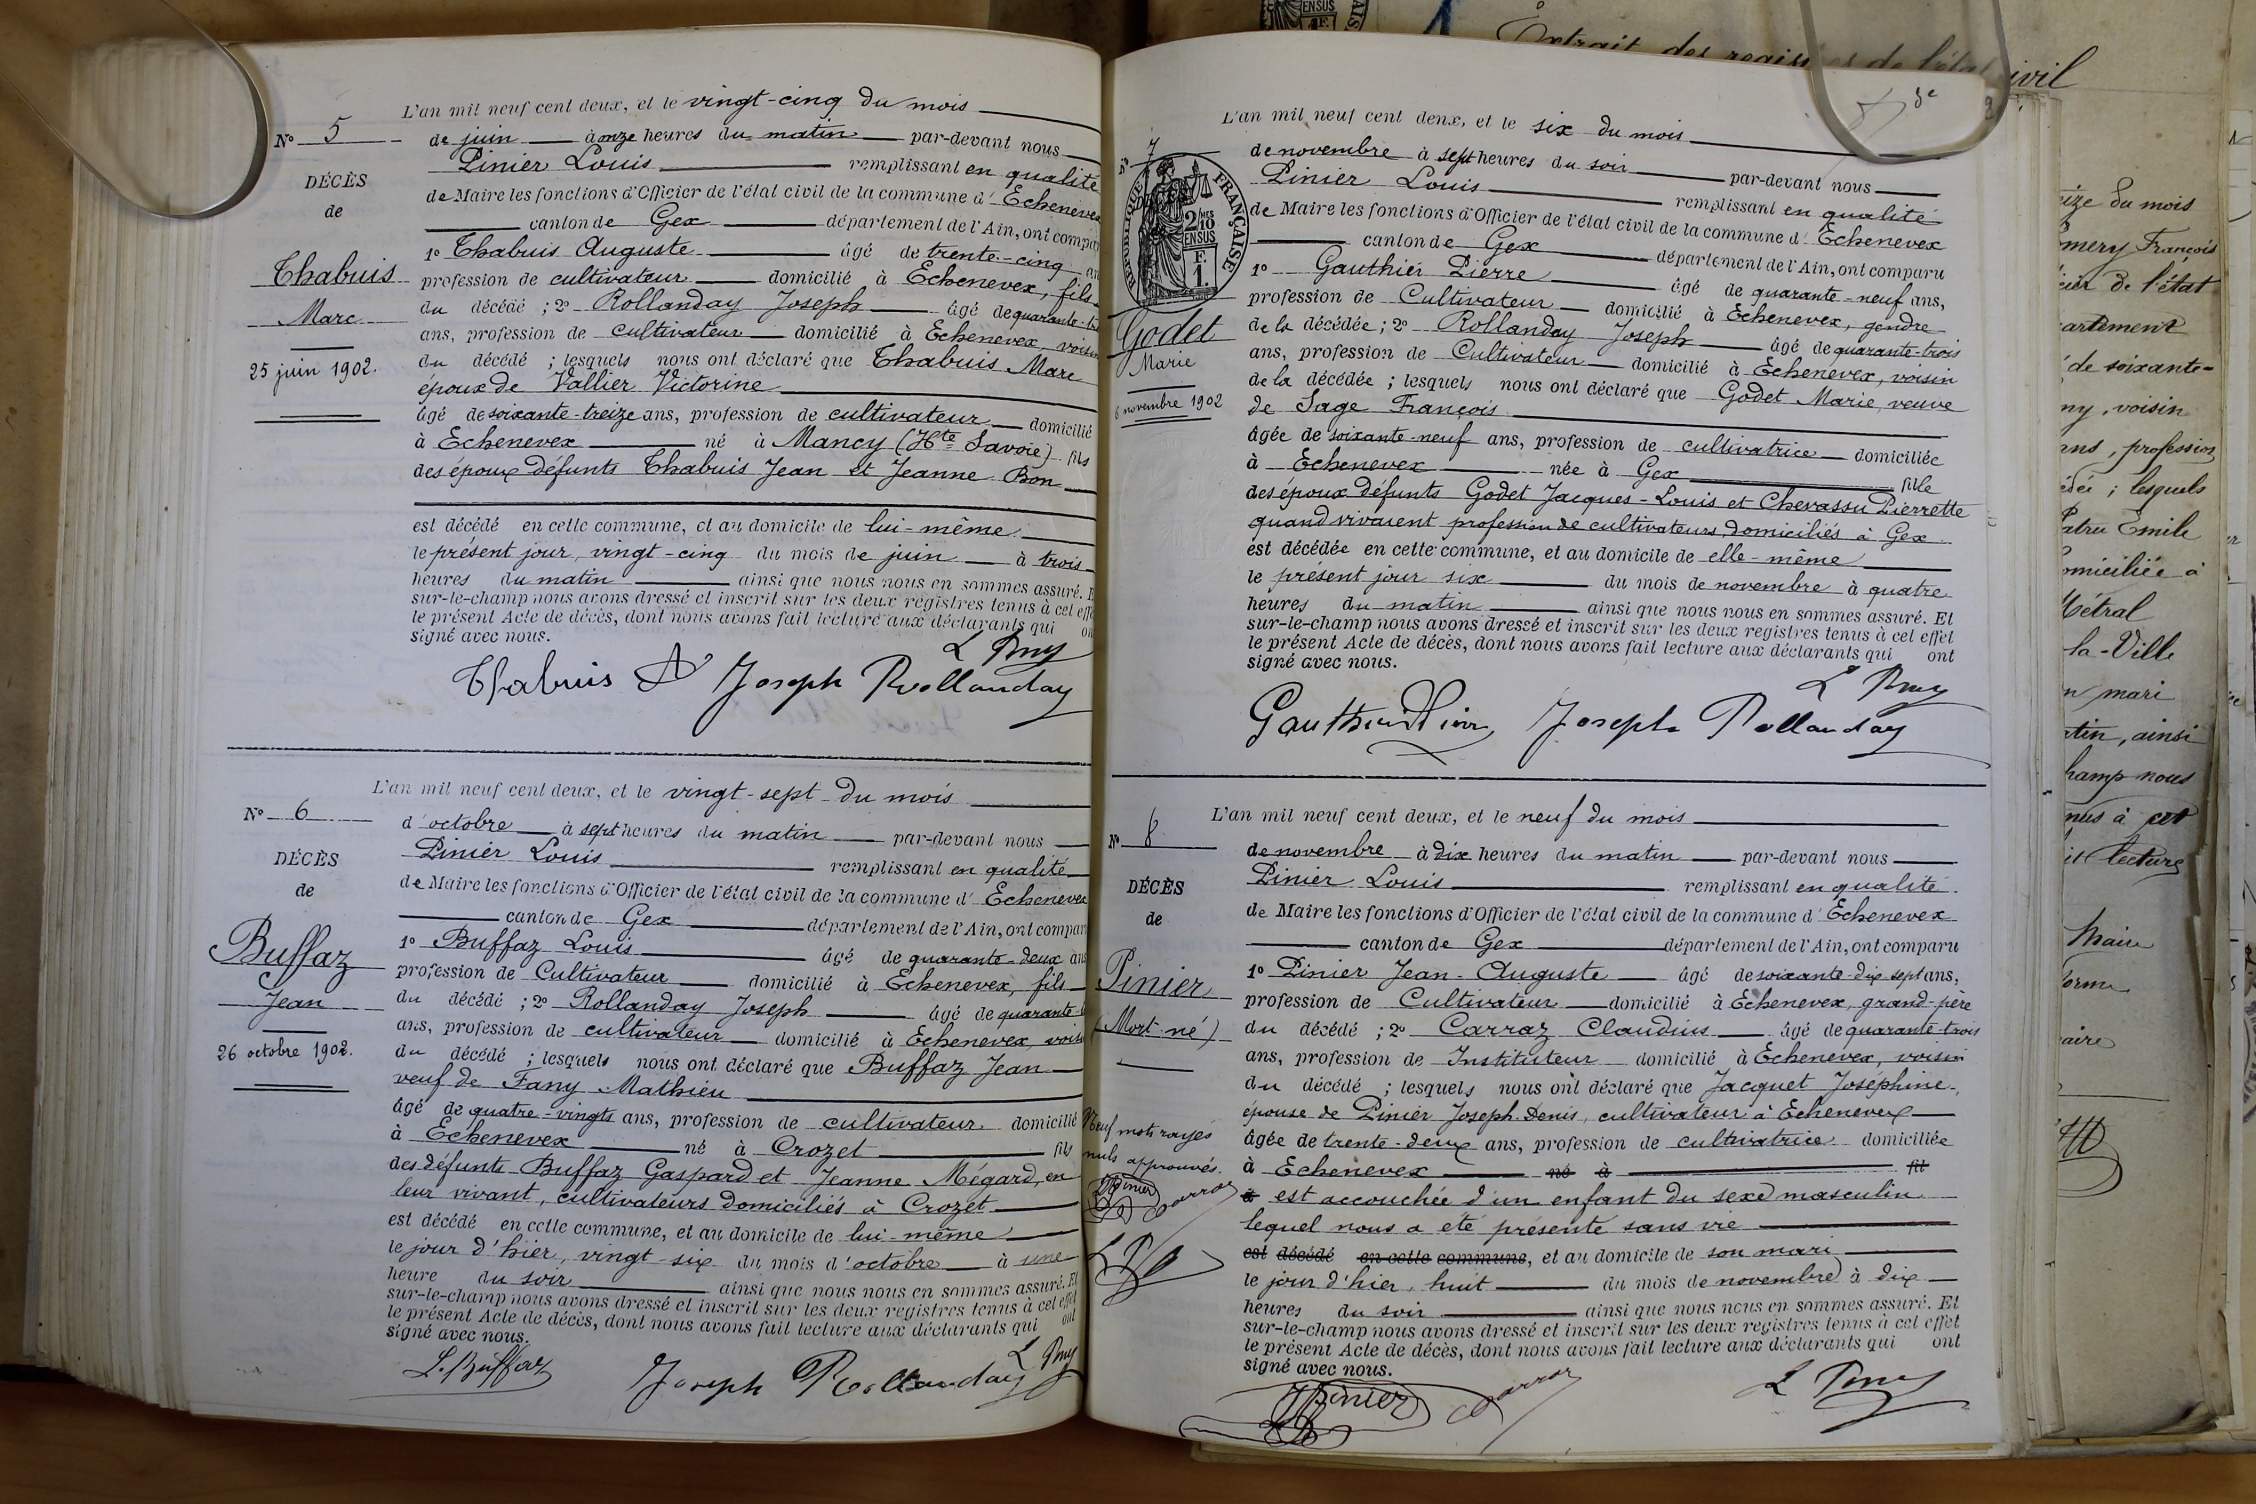 L'an mil neuf cent deux, et le vingt-cinq du mois
N° 5
de juin à onze heures du matin par-devant nous
Pinier Louis remplissant en qualité
DÉCÈS
de Maire les fonctions d'Officier de l'état civil de la commune d'Echenevex
de
canton de Gex département de l'Ain, ont compar
1° Thabuis Auguste âgé de trente-cinq an
Thabuis
profession de cultivateur domicilié à Echenevex, fils
Marc
du décédé ; 2° Rollanday Joseph âgé de quarante-
ans, profession de cultivateur domicilié à Echenevex, voisin
25 juin 1902.
du décédé ; lesquels nous ont déclaré que Thabuis Marc
époux de Vallier Victorine
âgé de soixante-treize ans, profession de cultivateur domicilié
à Echenevex né à Mancy (Hte Savoie) fils
des époux défunts Thabuis Jean et Jeanne Bon
est décédé en cette commune, et au domicile de lui-même
le présent jour, vingt-cinq du mois de juin à trois
heures du matin ainsi que nous nous en sommes assuré. E
sur-le-champ nous avons dressé et inscrit sur les deux registres tenus à cet effe
le présent Acte de décès, dont nous avons fait lecture aux déclarants qui on
signé avec nous.
L Piny
Thabuis A Joseph Rollanday
L'an mil neuf cent deux, et le vingt-sept du mois
N° 6
d'octobre à sept heures du matin par-devant nous
Pinier Louis remplissant en qualité
DÉCÈS
de Maire les fonctions d'Officier de l'état civil de la commune d'Echenevex
de
canton de Gex département de l'Ain, ont compar
1° Buffaz Louis âgé de quarante-deux ans
Buffaz
profession de Cultivateur domicilié à Echenevex, fils
Jean
du décédé ; 2° Rollanday Joseph âgé de quarante-
ans, profession de cultivateur domicilié à Echenevex, voisi
26 octobre 1902.
du décédé ; lesquels nous ont déclaré que Buffaz Jean
veuf de Fany Mathieu
âgé de quatre-vingts ans, profession de cultivateur domicilié
à Echenevex né à Crozet fils
des défunts Buffaz Gaspard et Jeanne Mégard, en
leur vivant, cultivateurs domiciliés à Crozet
est décédé en cette commune, et au domicile de lui-même
le jour d'hier, vingt-six du mois d'octobre à une
heure du soir ainsi que nous nous en sommes assuré. Et
sur-le-champ nous avons dressé et inscrit sur les deux registres tenus à cet effet
le présent Acte de décès, dont nous avons fait lecture aux déclarants qui ont
signé avec nous.
L Piny
L. Buffaz Joseph Rollanday
L'an mil neuf cent deux, et le six du mois
N° 7
de novembre à sept heures du soir par-devant nous
Pinier Louis remplissant en qualité
RÉPUBLIQUE FRANÇAISE
2/10 EN SUS
F. 1.
de Maire les fonctions d'Officier de l'état civil de la commune d'Echenevex
canton de Gex département de l'Ain, ont comparu
1° Gauthier Pierre âgé de quarante-neuf ans,
profession de Cultivateur domicilié à Echenevex, gendre
Godet
de la décédée ; 2° Rollanday Joseph âgé de quarante-trois
Marie
ans, profession de Cultivateur domicilié à Echenevex, voisin
6 novembre 1902
de la décédée ; lesquels nous ont déclaré que Godet Marie, veuve
de Sage François
âgée de soixante-neuf ans, profession de cultivatrice domiciliée
à Echenevex née à Gex fille
des époux défunts Godet Jacques-Louis et Chevassu Pierrette
quand vivaient profession de cultivateurs domiciliés à Gex
est décédée en cette commune, et au domicile de elle-même
le présent jour six du mois de novembre à quatre
heures du matin ainsi que nous nous en sommes assuré. Et
sur-le-champ nous avons dressé et inscrit sur les deux registres tenus à cet effet
le présent Acte de décès, dont nous avons fait lecture aux déclarants qui ont
signé avec nous.
L Piny
Gauthier Pierre Joseph Rollanday
L'an mil neuf cent deux, et le neuf du mois
N° 8
de novembre à dix heures du matin par-devant nous
Pinier Louis remplissant en qualité
DÉCÈS
de Maire les fonctions d'Officier de l'état civil de la commune d'Echenevex
de
canton de Gex département de l'Ain, ont comparu
1° Pinier Jean-Auguste âgé de soixante-dix-sept ans,
Pinier
profession de Cultivateur domicilié à Echenevex, grand-père
(Mort-né)
du décédé ; 2° Carraz Claudius âgé de quarante-trois
ans, profession de Instituteur domicilié à Echenevex, voisin
du décédé ; lesquels nous ont déclaré que Jacquet Joséphine,
épouse de Pinier Joseph-Denis, cultivateur à Echenevex
Neuf mots rayés
âgée de trente-deux ans, profession de cultivatrice domiciliée
nuls approuvés.
à Echenevex né à fil
Pinier Carraz
à est accouchée d'un enfant du sexe masculin
lequel nous a été présenté sans vie
est décédé en cette commune, et au domicile de son mari
le jour d'hier, huit du mois de novembre à dix
heures du soir ainsi que nous nous en sommes assuré. Et
sur-le-champ nous avons dressé et inscrit sur les deux registres tenus à cet effet
le présent Acte de décès, dont nous avons fait lecture aux déclarants qui ont
signé avec nous.
Pinier Carraz L Piny
Extrait des regis de l'état civil
du mois
François
de l'état
de soixante-
voisin
ans, profession
lesquels
Patru Emile
domiciliée à
Métral
la-Ville
mari
matin, ainsi
champ nous
à cet
lecture
Maire